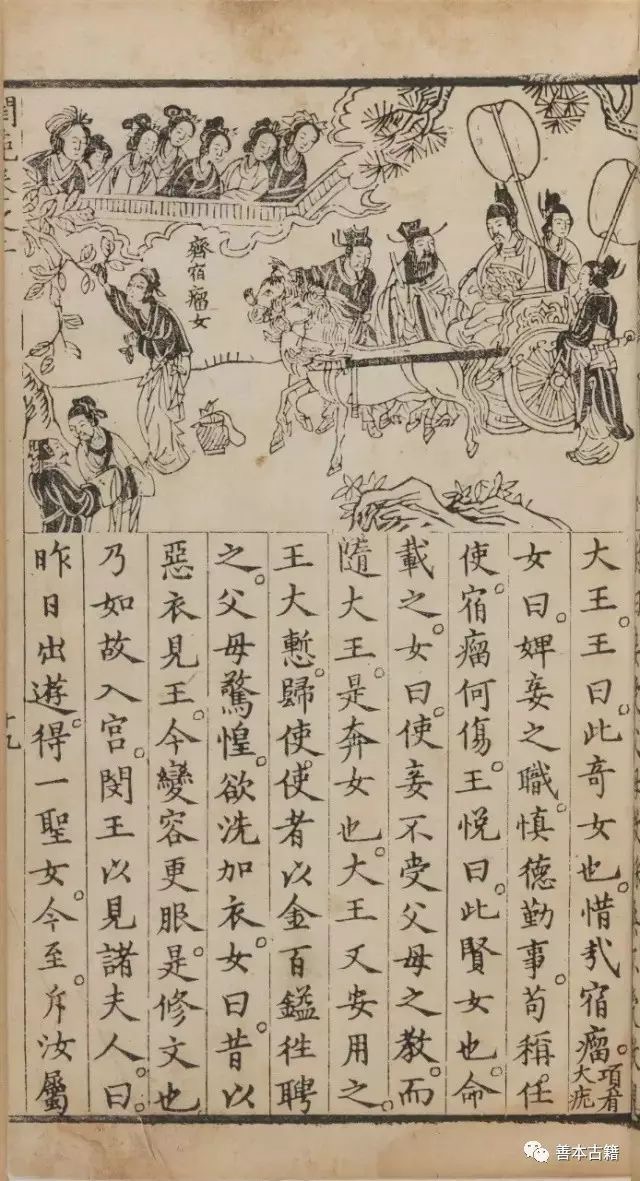 齊宿瘤女
大王。王曰。此奇女也。惜哉宿瘤。項有大疣
女曰。婢妾之職。慎德勤事。苟稱任
使。宿瘤何傷。王悅曰。此賢女也。命
載之。女曰。使妾不受父母之教。而
隨大王。是奔女也。大王又安用之。
王大慙。歸使使者以金百鎰徃聘
之。父母驚惶。欲洗加衣。女曰。昔以
惡衣見王。今變容更服。是修文也
乃如故入宮。閔王以見諸夫人。曰。
昨日出遊。得一聖女。今至。斥汝屬
十九
善本古籍